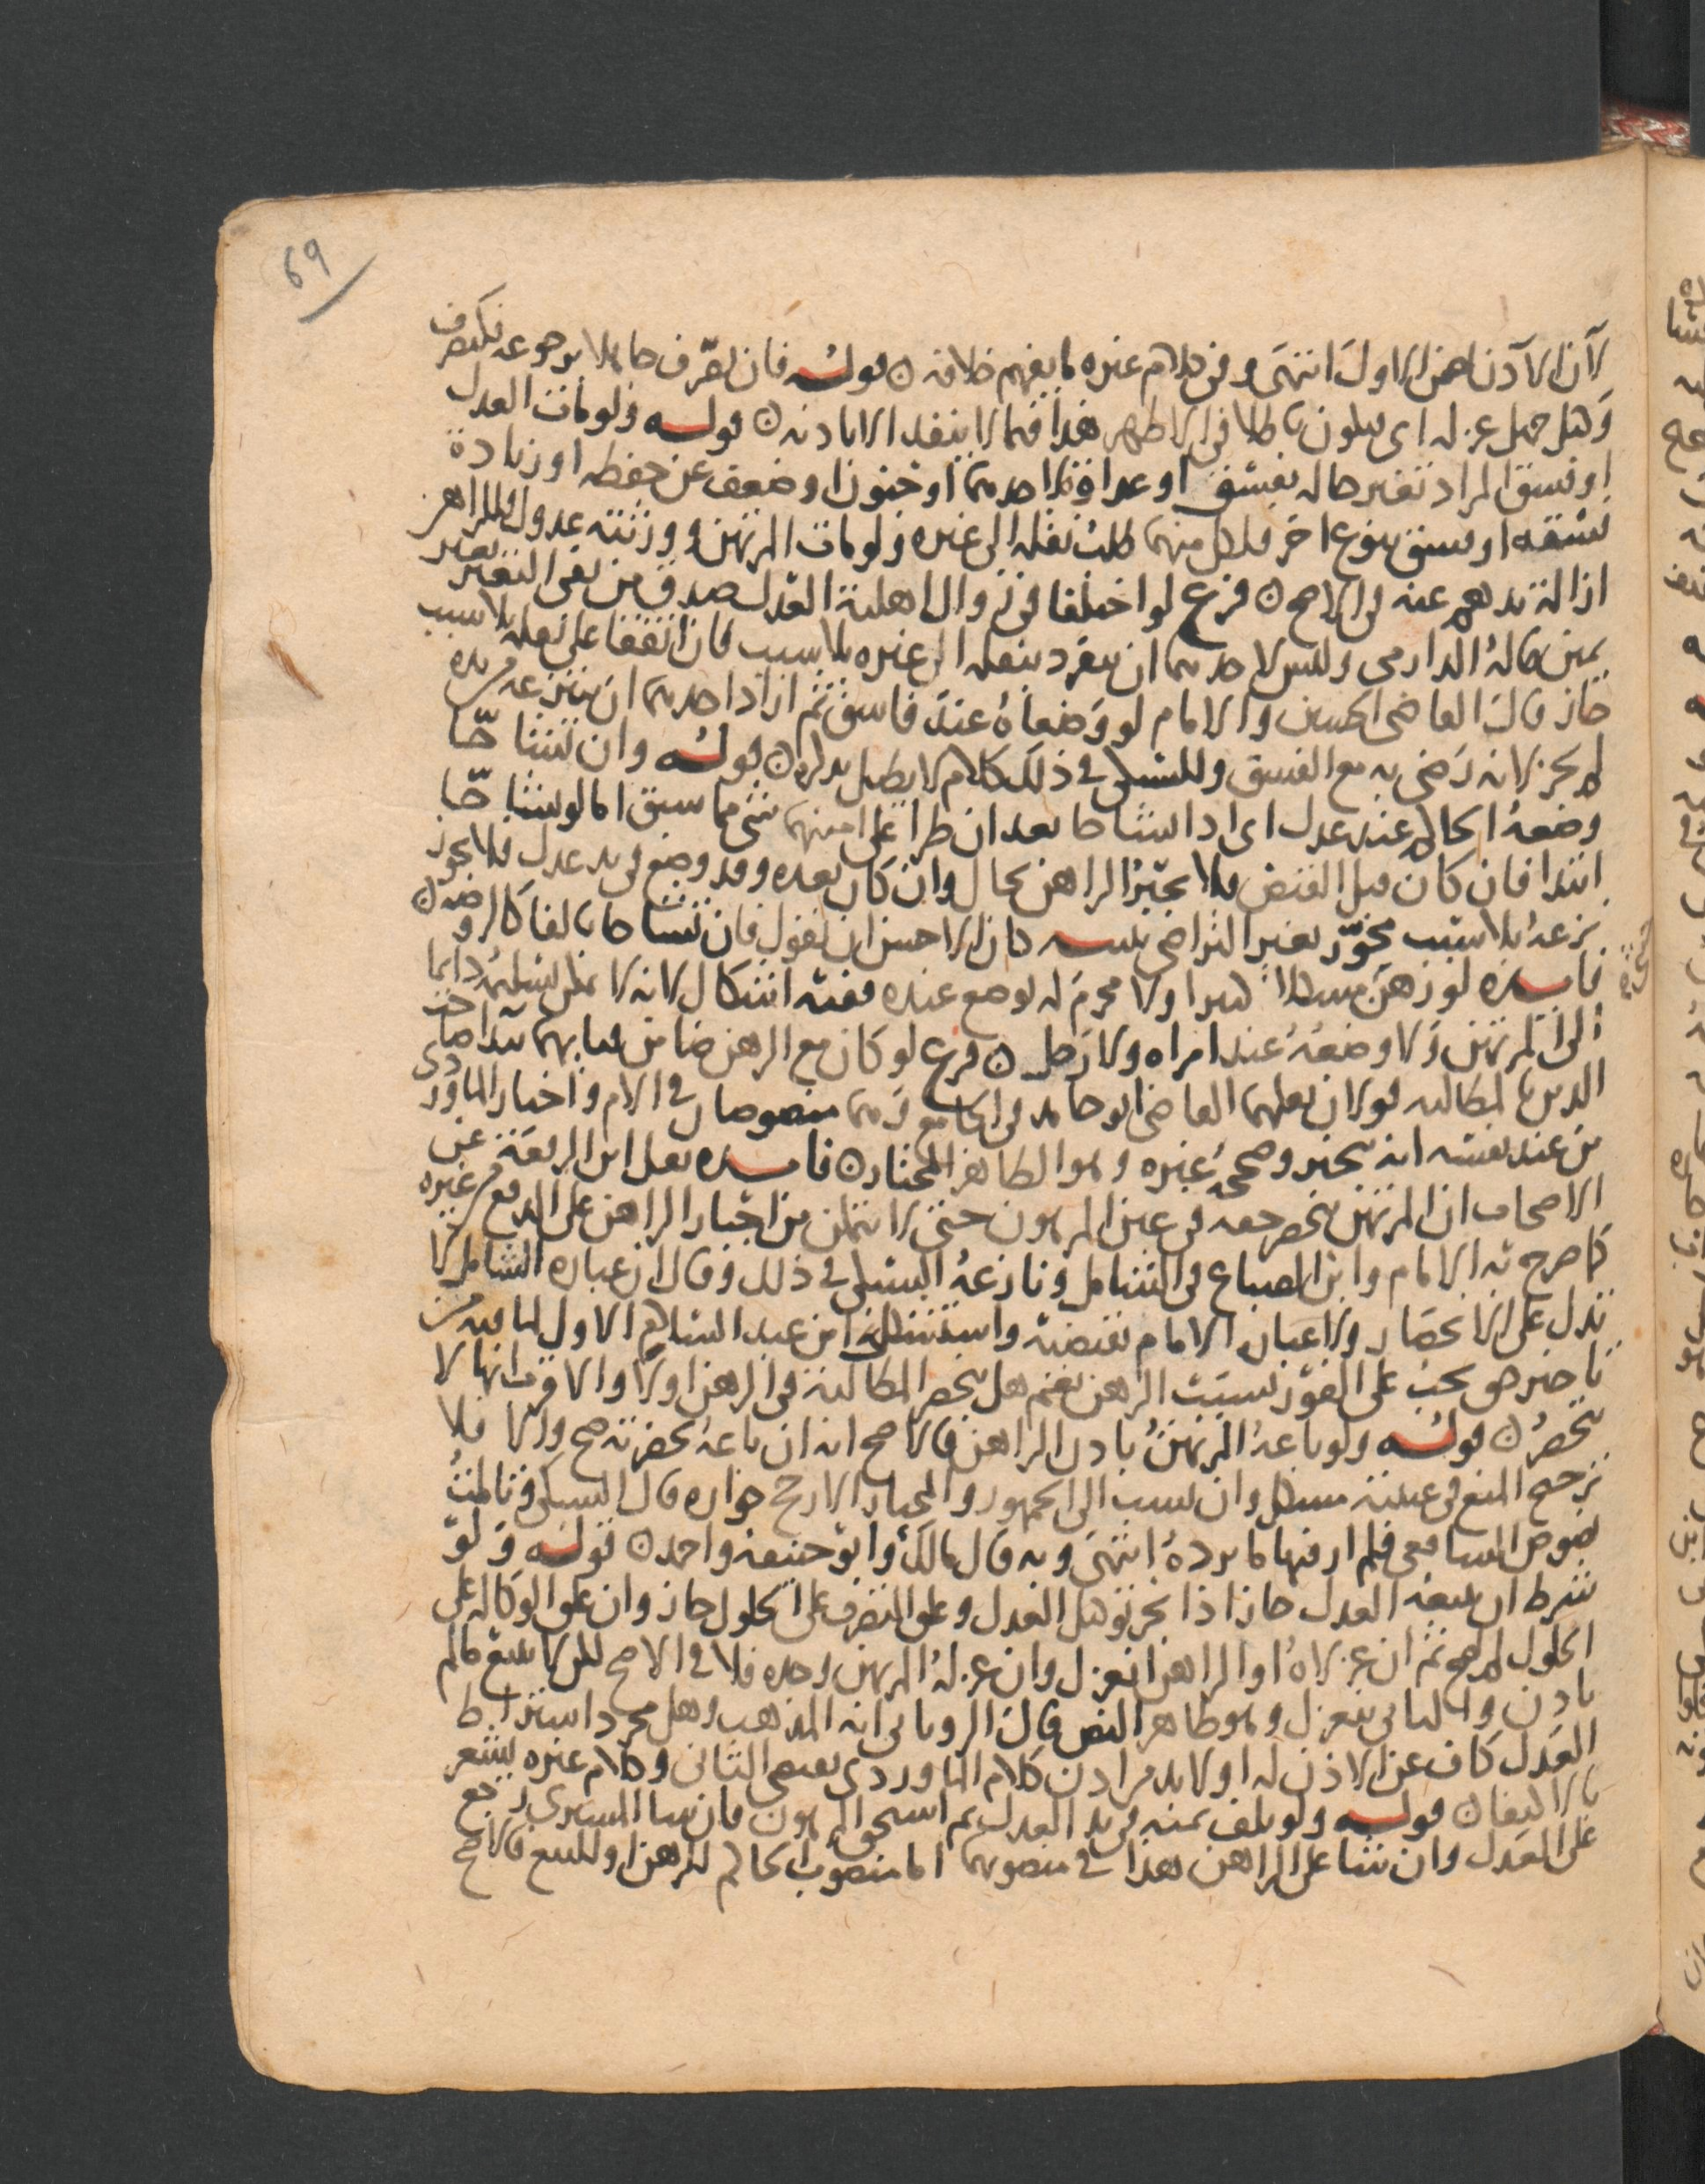 69
لان الاذن اهم الاول انتهى وفي كلام غيره ما يفهم خلافه ٥ قوله فان تصرف جاهلا برجوعه فكتصرف
وكيل جهل عزله اي يكون باطلا في الاظهر هذا فيما لا ينفذ الا باذنه ٥ قوله ولو مات العدل
او فسق المراد تغير حاله بفسق او عداوة لاحدهما او جنون او ضعف عن حفظه او زيادة
فسقه او فسق بنوع اخر فلكل منهما طلب نقله الى غيره ولو مات المرتهن وورثته عدول فللراهن
ازالة يدهم عنه في الاصح ٥ فرع لو اختلفا في زوال اهلية العدل صدق من نفى التغير بغير
يمين قاله الدارمي وليس لاحدهما ان ينفرد بنقله الى غيره بلا سبب فان اتفقا على نقله بلا سبب
جاز قال القاضي الحسين والامام لو وضعاه عند فاسق ثم اراد احدهما ان ينتزعه من يده
لم يجز لانه رضي به مع الفسق وللسبكي في ذلك كلام لا نطيل بذكره ٥ قوله وان تشاحا
وضعه الحاكم عند عدل اي اذا تشاحا بعد ان طرا على امينهما شي مما سبق اما لو تشاحا
ابتدا فان كان قبل القبض فلا يجبر الراهن بحال وان كان بعده وقد وضع في يد عدل فلا يجوز
نزعه بلا سبب مجوز بغير التراضي تنبيه كان الاحسن ان يقول فان تشاحا بالفا كالروضه ٥
فايده لو رهن مثلا ولا محرم له يوضع عنده ففيه اشكال لانه لا يمكن تسليمه دايما
الى المرتهن ولا وضعه عند امراة ولا رجل ٥ فرع لو كان مع الرهن ضامن فبايهما يبدا صاحب
الدين بالمطالبه قولان نقلهما القاضي ابو حامد في الجامع وهما منصوصان في الام واختار الماوردي
من عند نفسه انه يتخير وصححه غيره وهو الظاهر المختار ٥ فايده نقل ابن الرفعة عن
الاصحاب ان المرتهن ينحصر حقه في عين المرهون حتى لا يتمكن من اجبار الراهن على الدفع من غيره
كما صرح به الامام وابن الصباغ في الشامل ونازعه السبكي في ذلك وقال ان عبارة الشامل لا
تدل على الانحصار ولا عبارة الامام تقتضيه واستشكل ابن عبد السلام الاول لما فيه من
تاخير حق يجب على الفور بسبب الرهن نعم هل تنحصر المطالبة في الرهن اولا والاقرب انها لا
تنحصر ٥ قوله ولو باعه المرتهن باذن الراهن فالاصح انه ان باعه بحضرته صح والا فلا
ترجيح المنع في غيبته مشكل وان نسب الى الجمهور والمختار الارجح جوازه قال السبكي وتاملت
نصوص الشافعي فلم ار فيها ما يرده انتهى وبه قال مالك وابو حنيفة واحمد ٥ قوله ولو
شرط ان يبيعه العدل جاز اذا نجز توكيل العدل وعلق التصرف على الحلول جاز وان علق الوكالة على
الحلول لم تصح ثم ان عزلاه او الراهن انعزل وان عزله المرتهن وحده فلا في الاصح لكن لا يبيع ما لم
ياذن والثاني ينعزل وهو ظاهر النص قال الروياني انه المذهب وهل مجرد اشتراط
العدل كاف عن الاذن له اولا بد من اذن كلام الماوردي يقتضي الثاني وكلام غيره يشعر
بالاكتفا ٥ قوله ولو تلف ثمنه في يد العدل ثم استحق المرهون فان شا المشتري رجع
على العدل وان شا على الراهن هذا في منصوبهما اما منصوب الحاكم للرهن او للبيع فالاصح